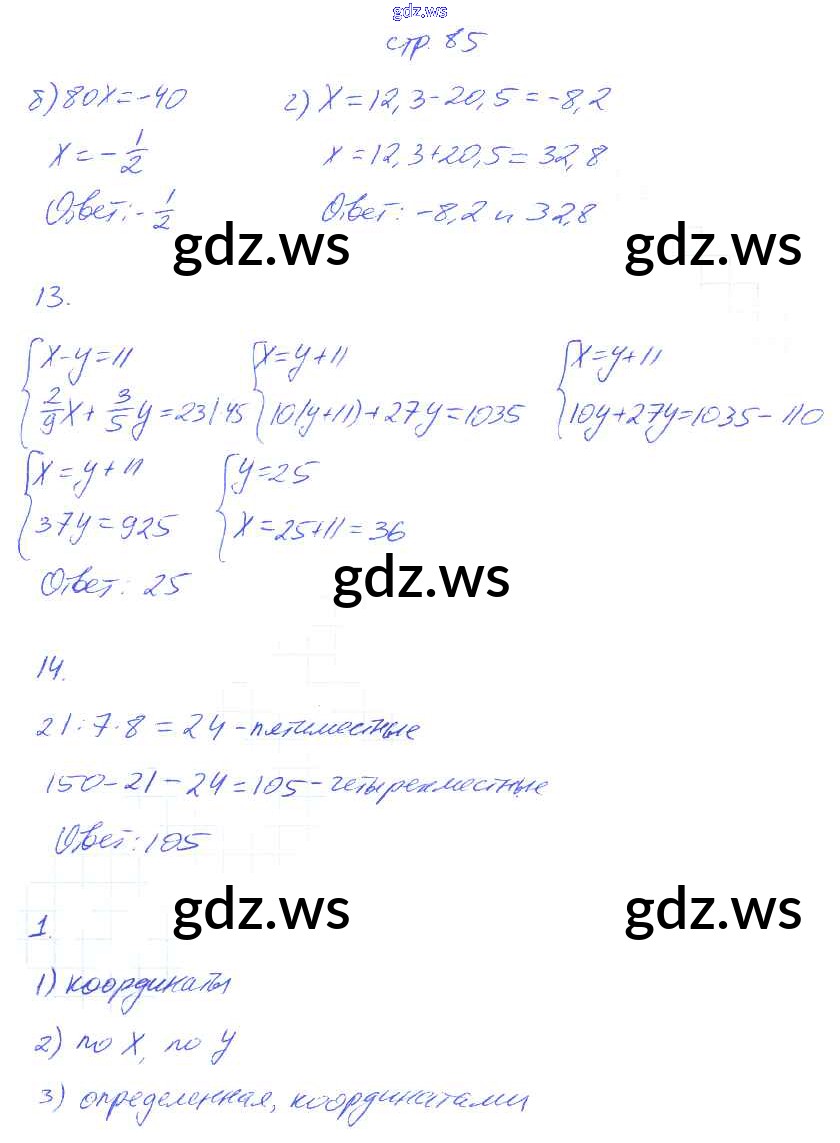 gdz.ws
стр. 85
б) 80x=-40
x=-1/2
Ответ: -1/2
г) x=12,3-20,5=-8,2
x=12,3+20,5=32,8
Ответ: -8,2 и 32,8
gdz.ws gdz.ws
13.
{x-y=11 {x=y+11 {x=y+11
{2/9x+3/5y=23/·45 {10(y+11)+27y=1035 {10y+27y=1035-110
{x=y+11 {y=25
{37y=925 {x=25+11=36
Ответ: 25
gdz.ws
14.
21:7·8=24-пятиместные
150-21-24=105-четырехместные
Ответ: 105
gdz.ws gdz.ws
1.
1) координаты
2) по x, по y
3) определенная, координатами